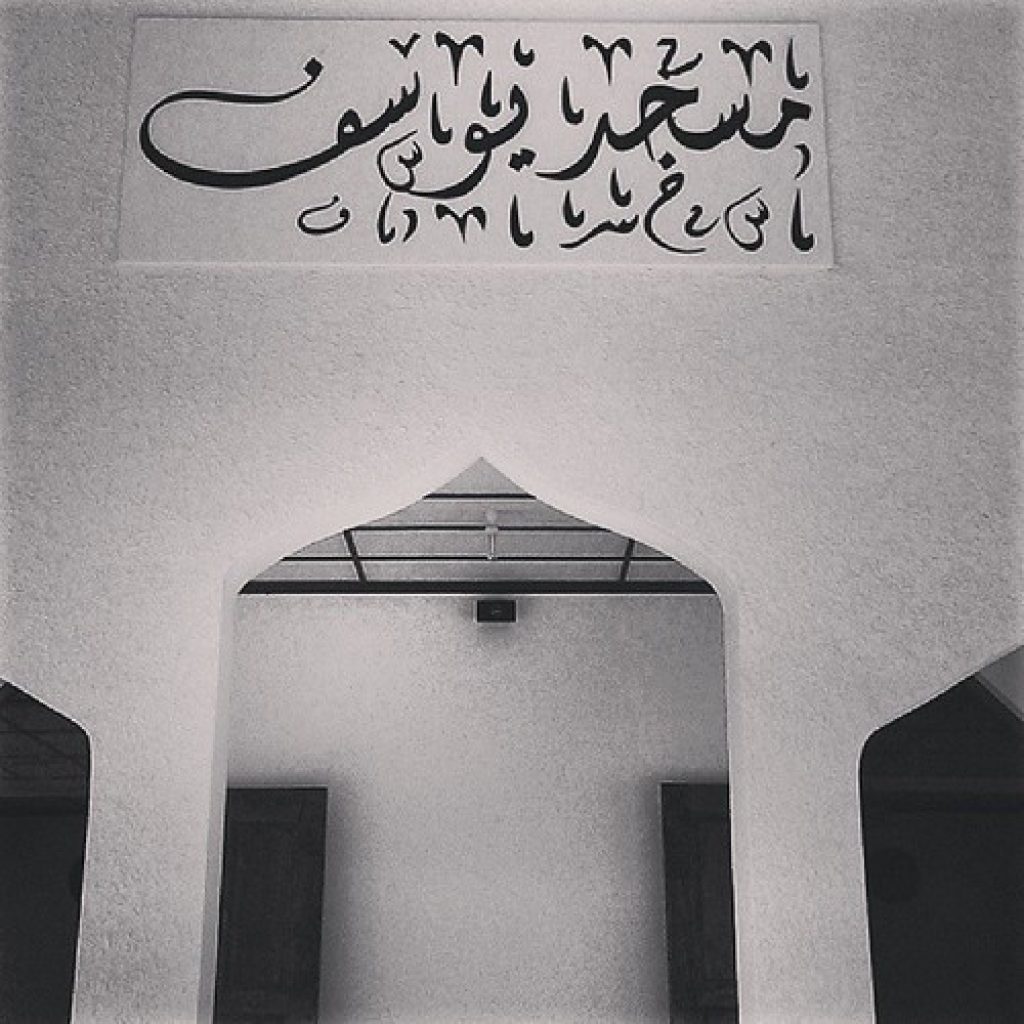 مسجد يوسف